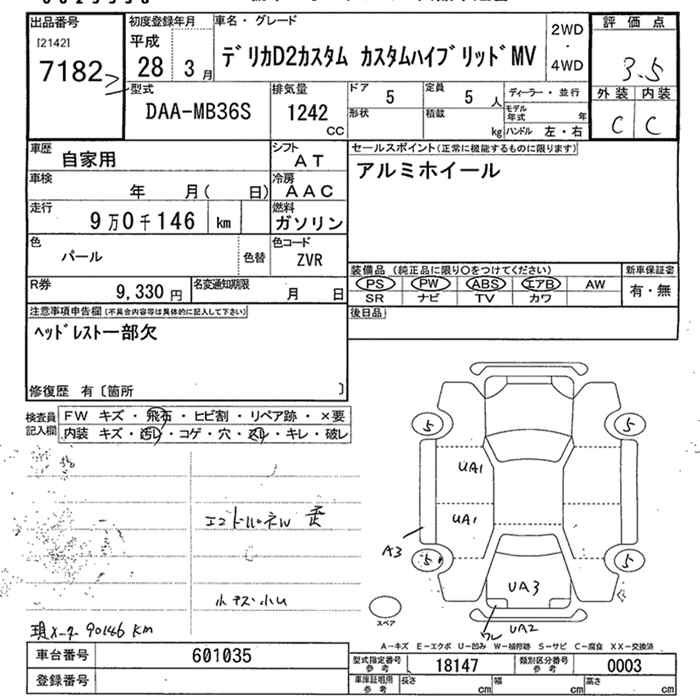 出品番号
[2142]
7182
初度登録年月
平成
28 3月
車名・グレード
デリカD2カスタム カスタムハイブリッドMV
2WD
・
4WD
評価点
3.5
外装 内装
C C
型式
DAA-MB36S
排気量
1242
CC
ドア 5
定員 5 人
形状
積載 kg
ディーラー・並行
モデル年式 年
ハンドル 左・右
車歴 自家用
シフト AT
車検 年 月( 日)
冷房 AAC
走行 9万0千146 km
燃料 ガソリン
色 パール
色替
色コード ZVR
R券 9,330円
名変通知期限 月 日
セールスポイント(正常に機能するものに限ります)
アルミホイール
装備品 (純正品に限り○をつけてください)
PS PW ABS エアB AW
SR ナビ TV カワ
新車保証書
有・無
後日品
注意事項申告欄(不具合内容等は具体的に記入して下さい)
ヘッドレスト一部欠
修復歴 有〔箇所 〕
検査員記入欄
FW キズ・飛石・ヒビ割・リペア跡・×要
内装 キズ・汚レ・コゲ・穴・スレ・キレ・破レ
小キズ小U
現メーター 90146 KM
5 5
UA1
UA1
A3
5 5
UA3
UA2
スペア
A-キズ E-エクボ U-凹み W-補修跡 S-サビ C-腐食 XX-交換済
車台番号 601035
登録番号
型式指定番号参考 18147
類別区分番号参考 0003
車庫証明用参考
長さ cm 幅 cm 高さ cm